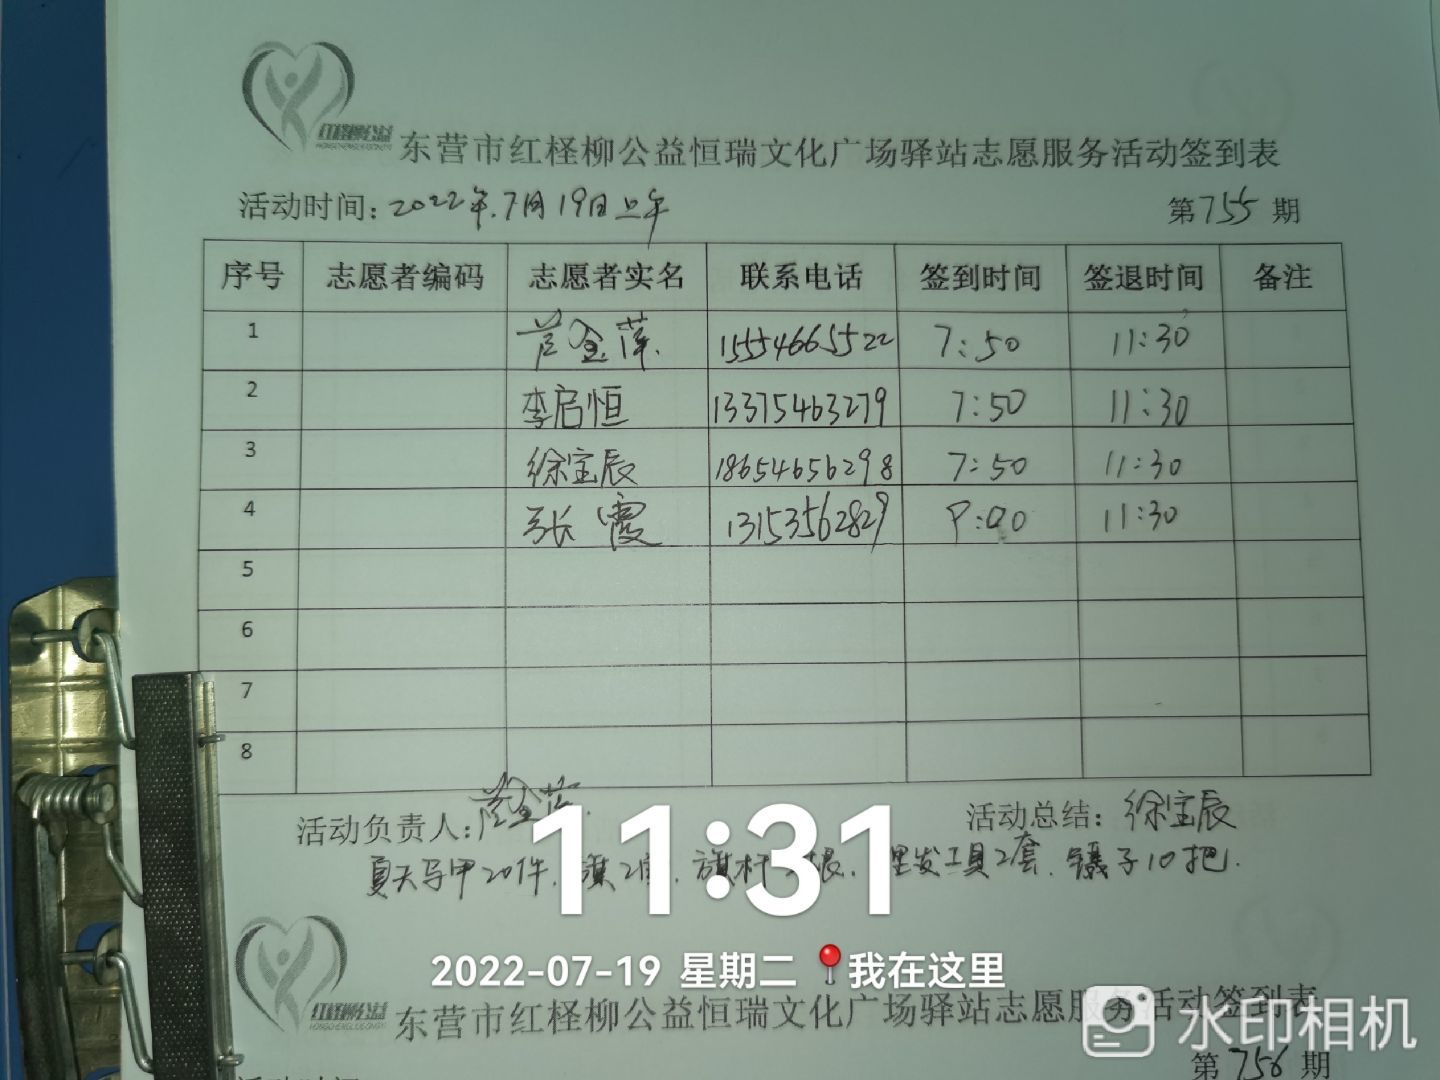 红柽柳公益
东营市红柽柳公益恒瑞文化广场驿站志愿服务活动签到表
活动时间: 2022年.7月19日上午 第755期
序号 志愿者编码 志愿者实名 联系电话 签到时间 签退时间 备注
1 金萍. 15554665522 7:50 11:30
2 李启恒 13375463279 7:50 11:30
3 徐宝辰 18654656298 7:50 11:30
4 张霞 13153562829 :00 11:30
5
6
7
8
活动负责人: 活动总结: 徐宝辰
夏天马甲20件. 旗2 旗杆 根. 理发工具2套. 镊子10把.
11:31
2022-07-19 星期二 我在这里
红柽柳公益
东营市红柽柳公益恒瑞文化广场驿站志愿服务活动签到表
水印相机
第756期
活动时间